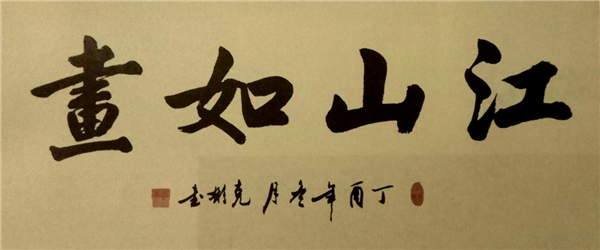 江山如畫
丁酉年冬月克彬書